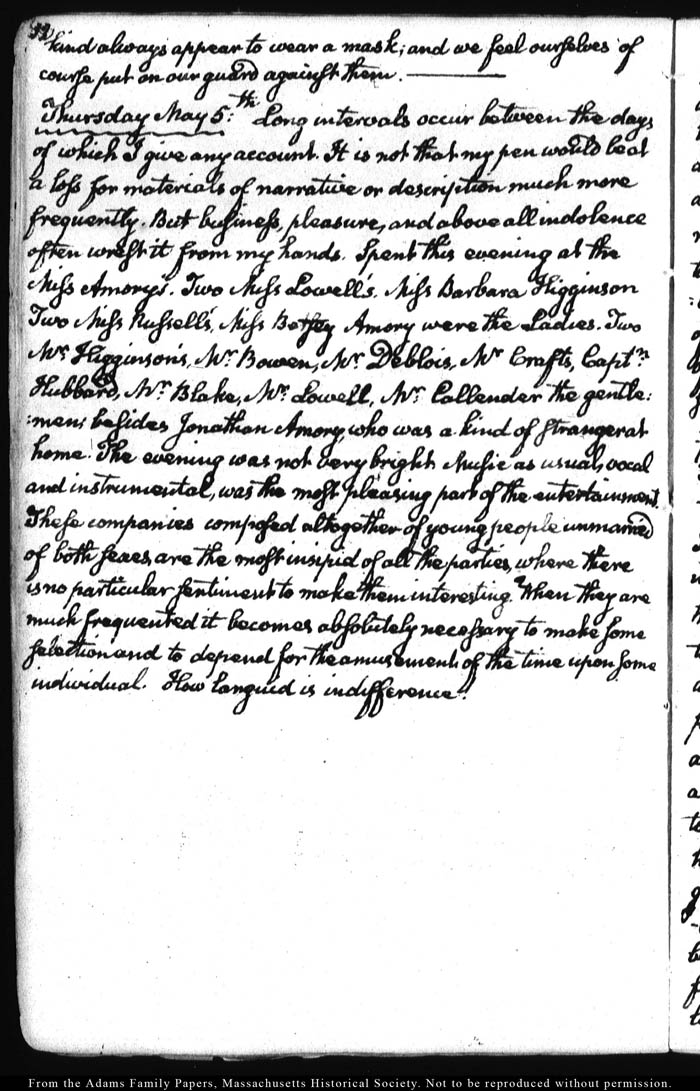 32
kind always appear to wear a mask; and we feel ourselves of
course put on our guard against them.
Thursday May 5:th Long intervals occur between the days
of which I give any account. It is not that my pen would be at
a loss for materials of narrative or description much more
frequently. But business, pleasure, and above all indolence
often wrest it from my hands. Spent this evening at the
Miss Amory's. Two Miss Lowell's. Miss Barbara Higginson
Two Miss Russell's, Miss Betsey Amory were the Ladies. Two
Mr. Higginson's, Mr. Bowen, Mr. Deblois, Mr. Crafts, Captn.
Hubbard, Mr. Blake, Mr. Lowell, Mr. Callender the gentle:
:men; besides Jonathan Amory, who was a kind of stranger at
home. The evening was not very bright. Music as usual, vocal
and instrumental, was the most pleasing part of the entertainment.
These companies composed altogether of young people unmarried
of both sexes, are the most insipid of all the parties, where there
is no particular sentiment to make them interesting. When they are
much frequented it becomes absolutely necessary to make some
selection and to depend for the amusement of the time upon some
individual. How languid is indifference!
From the Adams Family Papers, Massachusetts Historical Society. Not to be reproduced without permission.